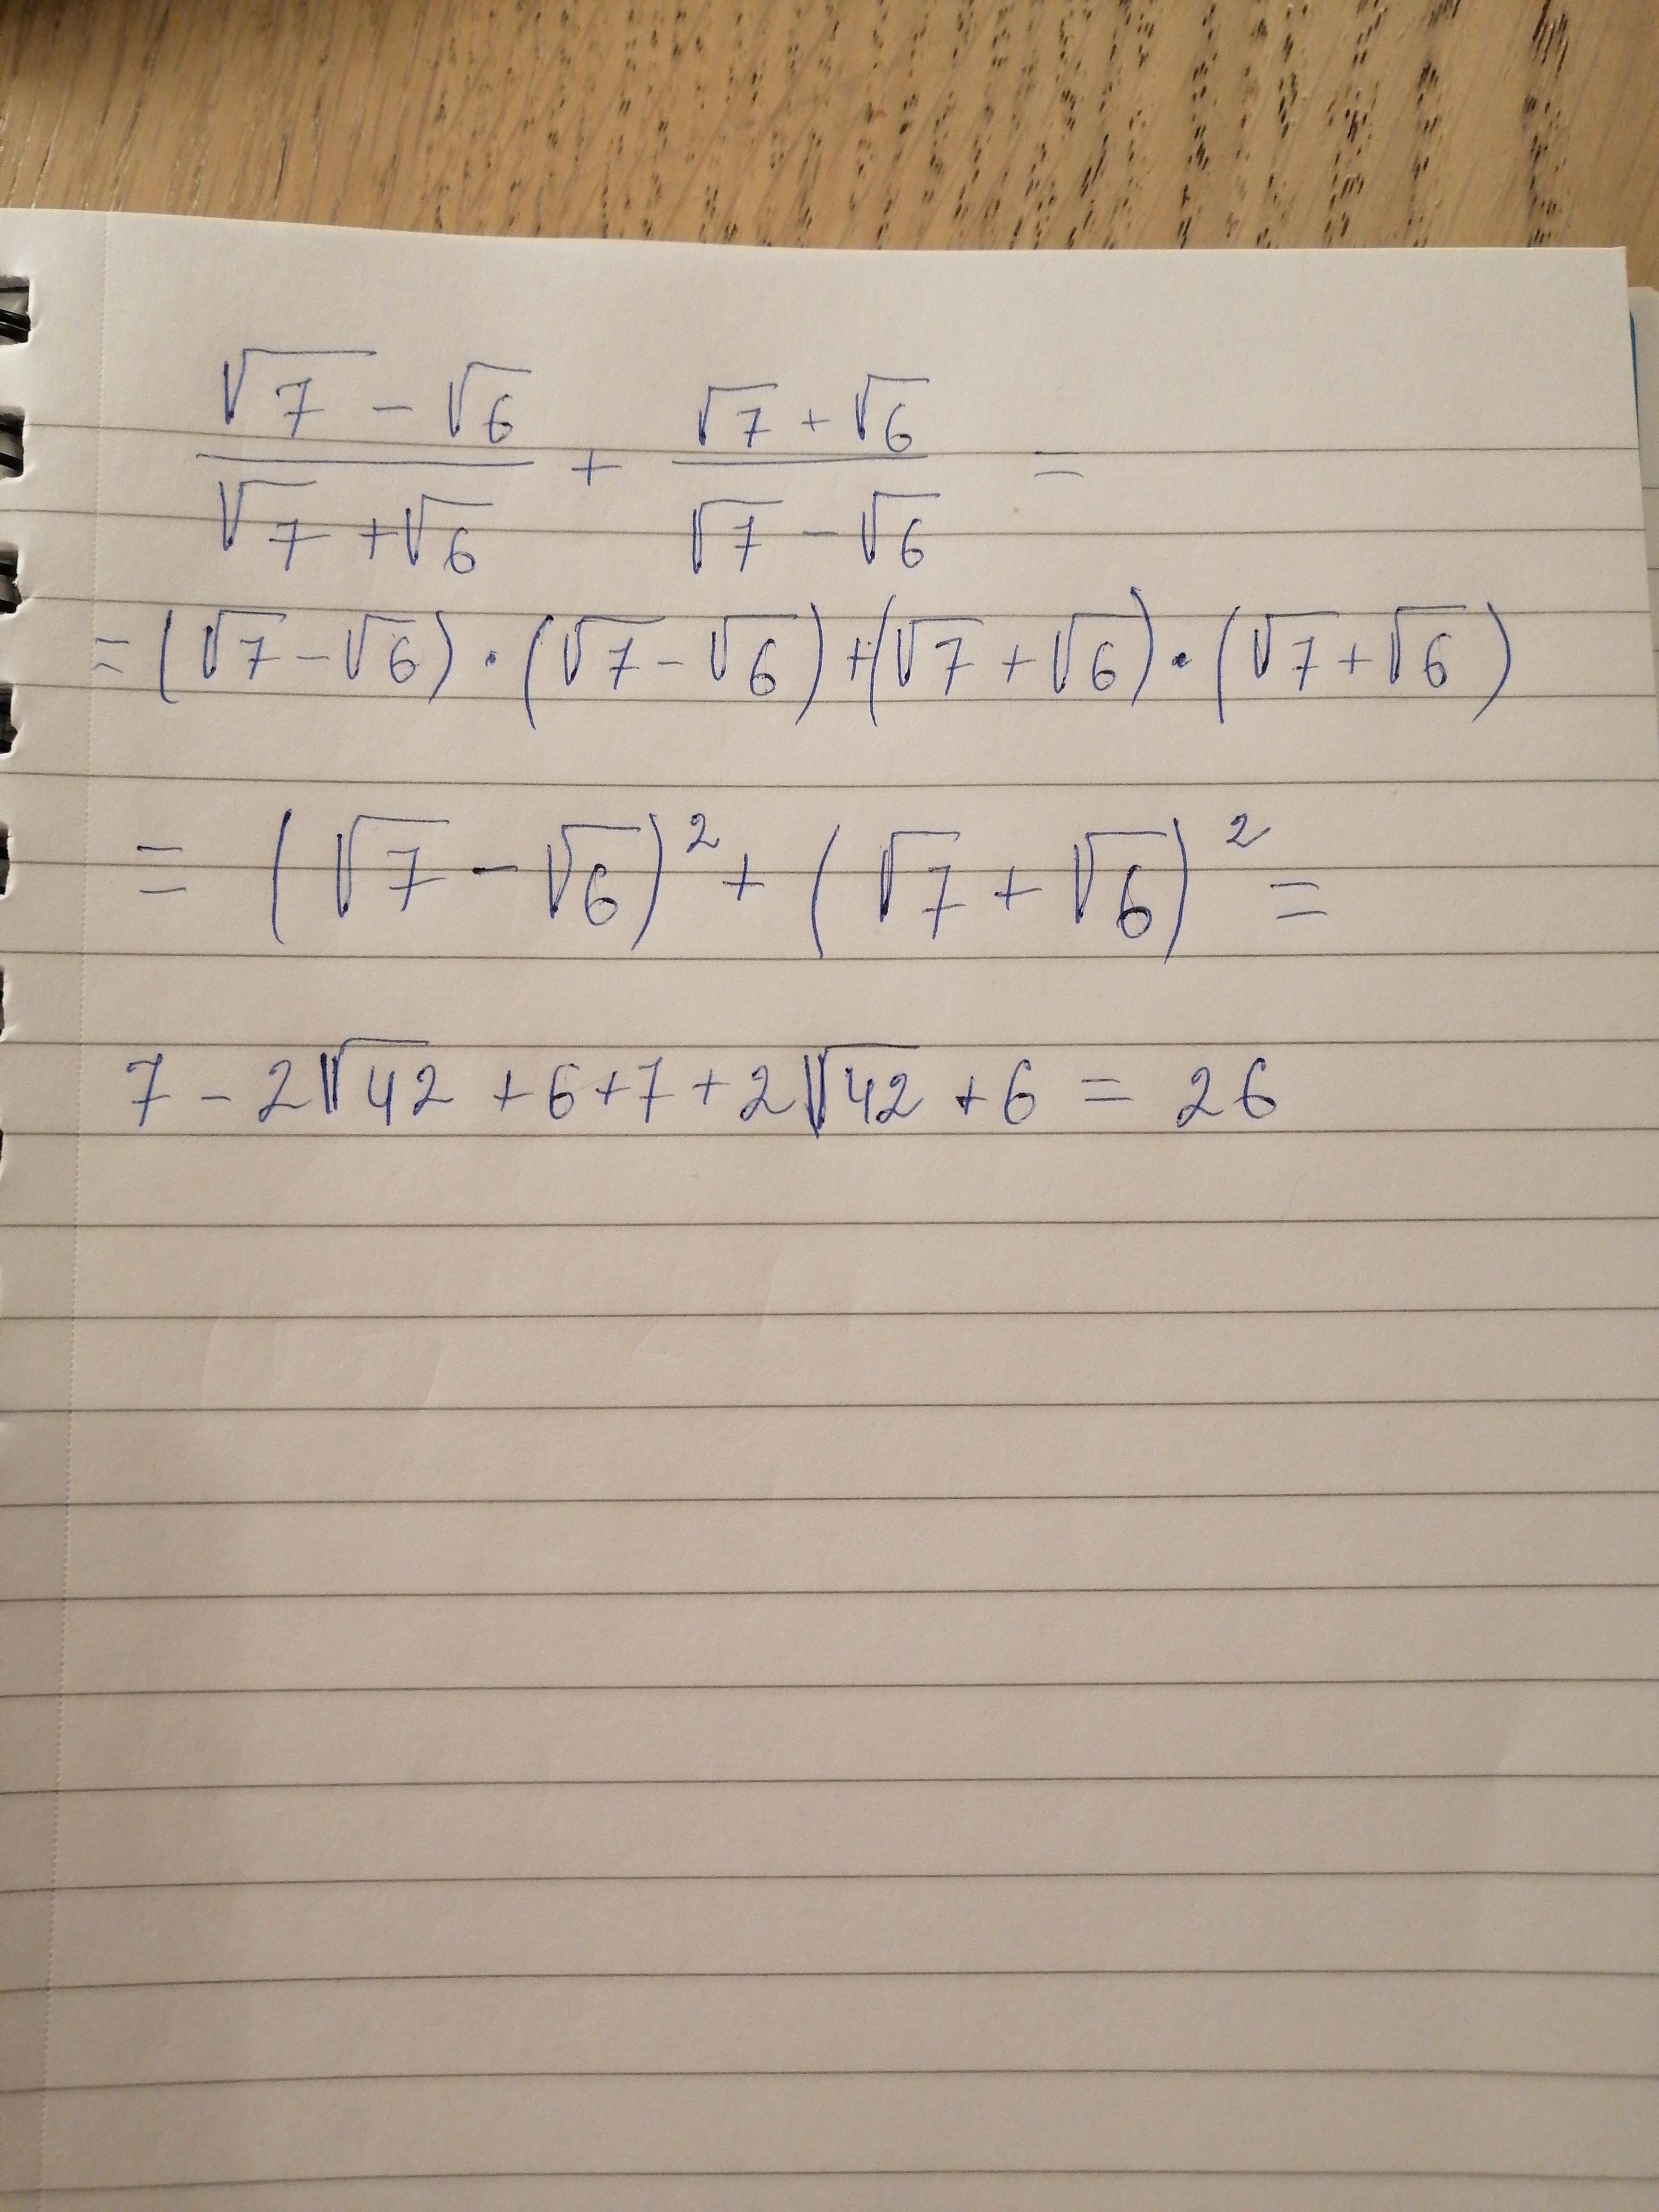 (√7 - √6)/(√7 + √6) + (√7 + √6)/(√7 - √6) =
= (√7 - √6) · (√7 - √6) + (√7 + √6) · (√7 + √6)
= (√7 - √6)² + (√7 + √6)² =
7 - 2√42 + 6 + 7 + 2√42 + 6 = 26